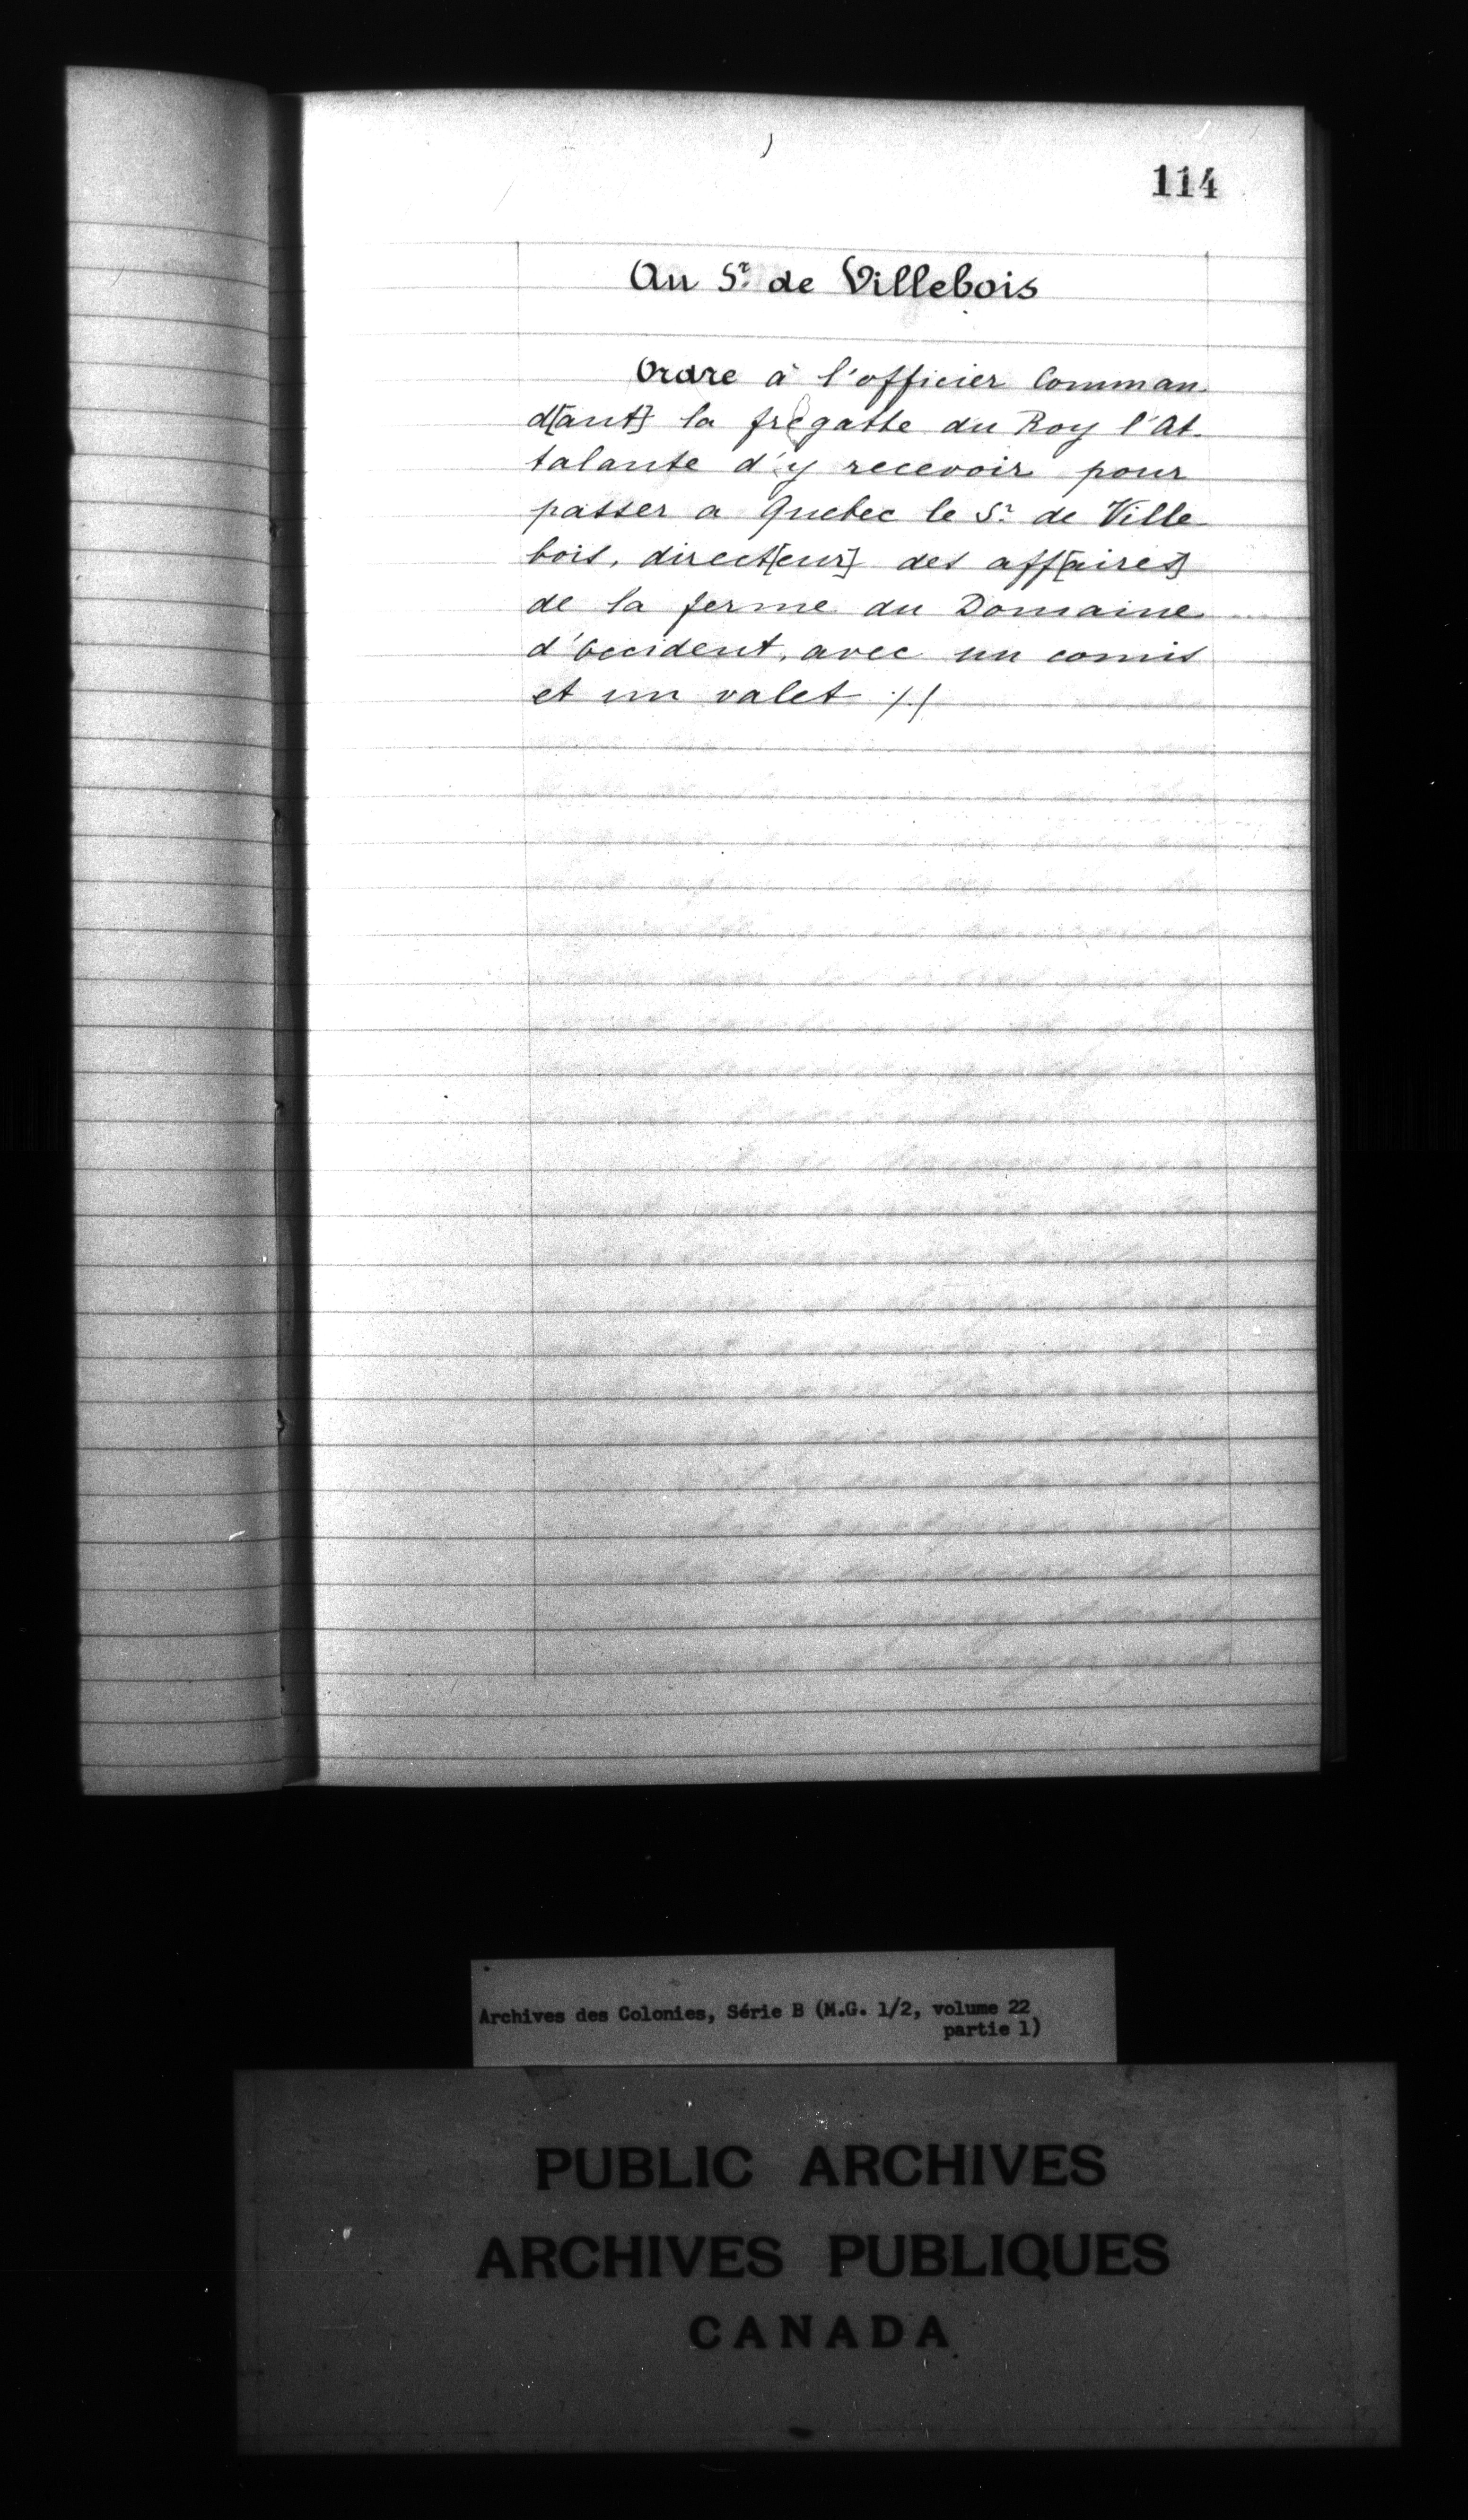 114
Au Sr. de Villebois
Ordre à l'officier Comman-
d[ant] la fregatte du Roy l'At-
talante d'y recevoir pour
passer a Quebec le Sr. de Ville-
bois, direct[eur] des aff[aires]
de la ferme du Domaine
d'occident, avec un comis
et un valet ./.
Archives des Colonies, Série B (M.G. 1/2, volume 22
partie 1)
PUBLIC ARCHIVES
ARCHIVES PUBLIQUES
CANADA